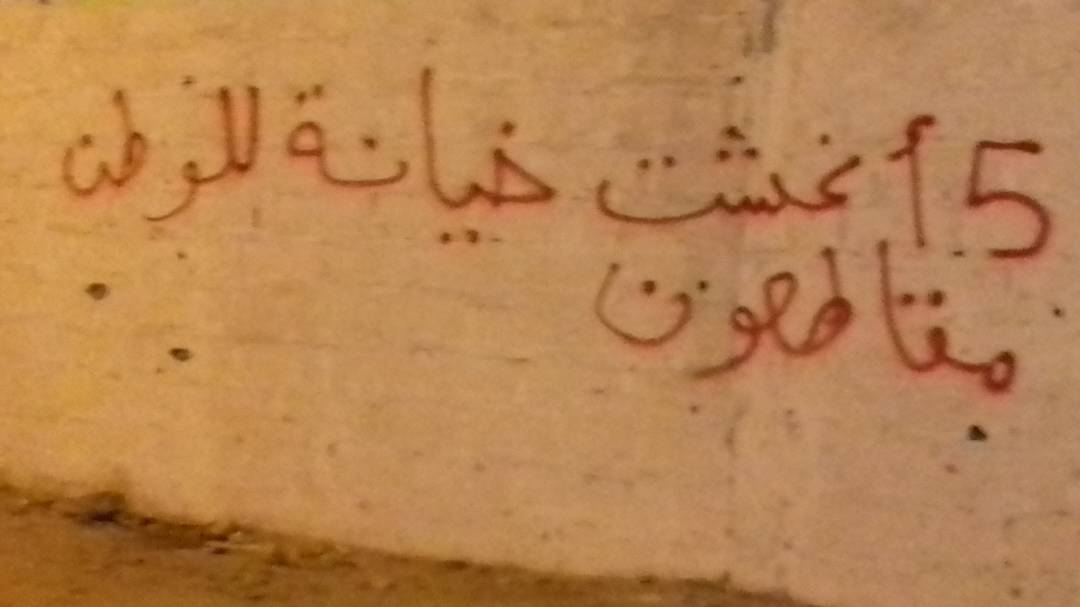 5 أغشت خيانة للوطن
مقاطعون